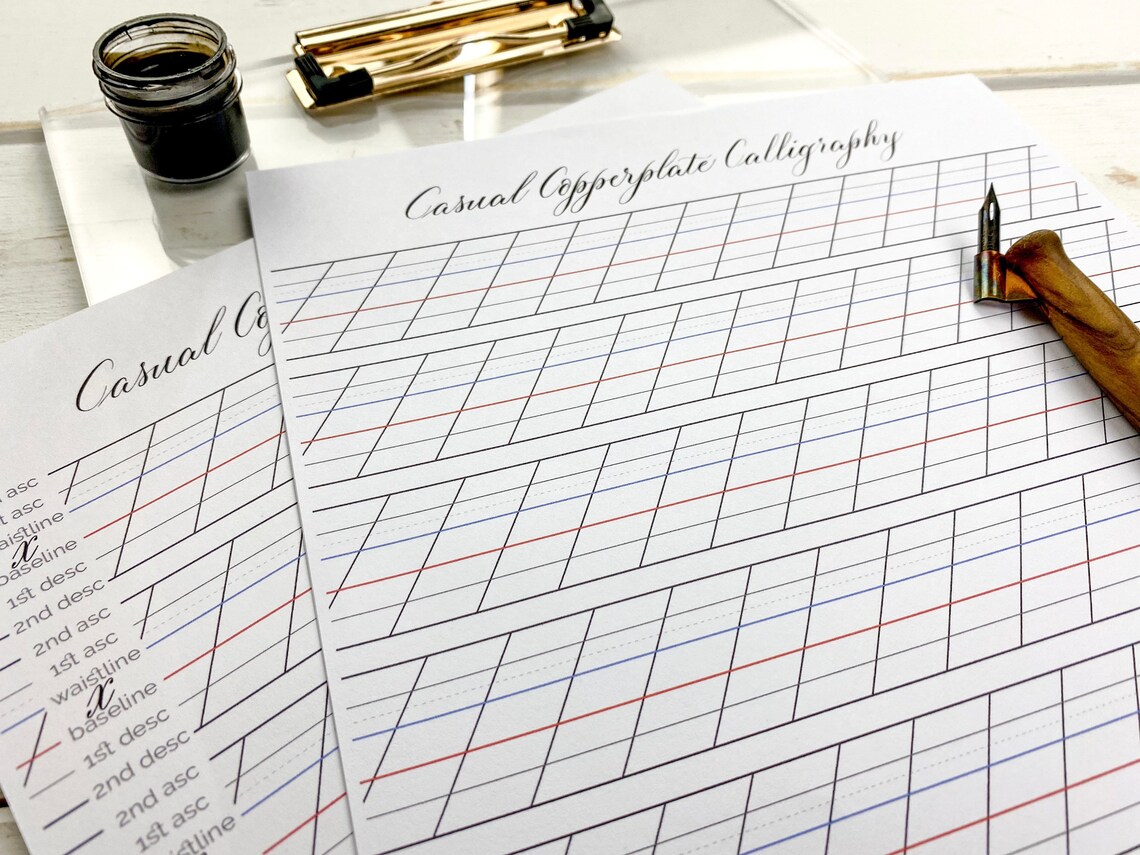 Casual Copperplate Calligraphy
Casual
asc
asc
waistline
x
baseline
1st desc
2nd desc
2nd asc
1st asc
waistline
x
baseline
1st desc
2nd desc
2nd asc
1st asc